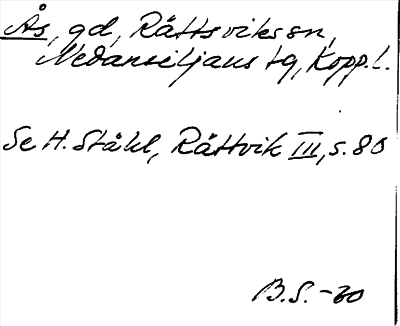 Ås, gd, Rättsviks sn,
Nedansiljans tg, Kopp. l.
Se H. Ståhl, Rättvik III, s. 80
B.S. -60